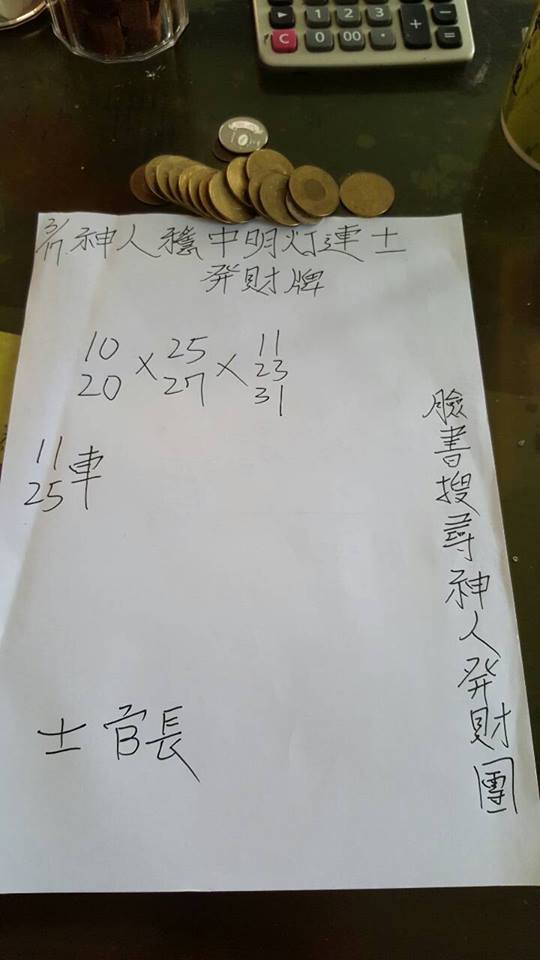 3/17 神人穩中明灯連士
発財牌
10 × 25 × 11
20 27 23
31
11 車
25
士官長
臉書搜尋神人発財團
1 2 3 +
C 0 00 · − =